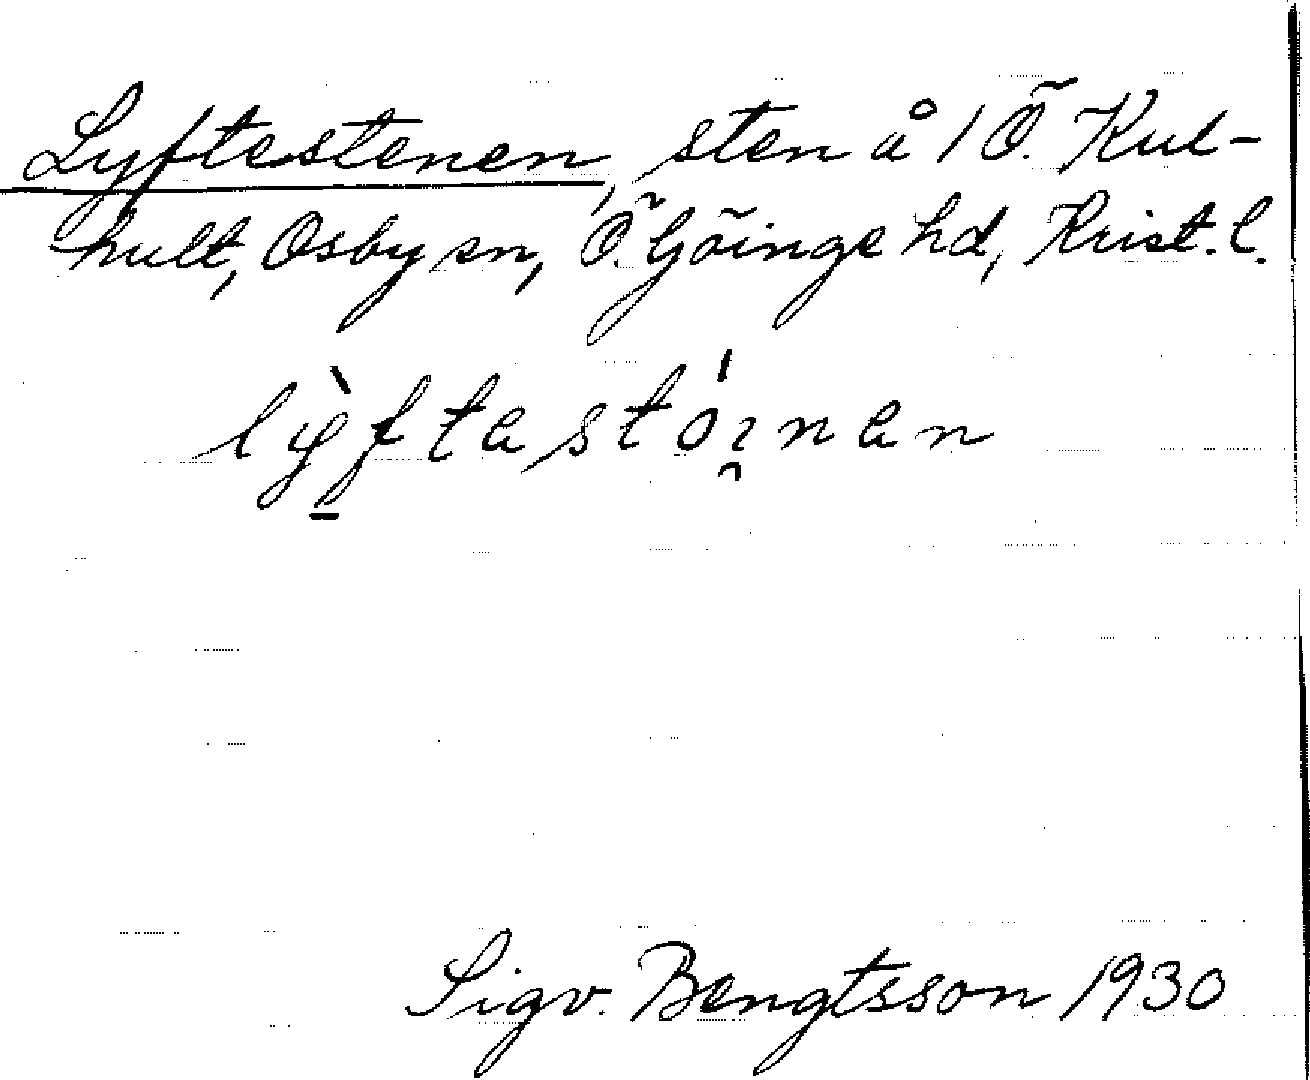 Lyftestenen, sten å 1 Ö. Kul-
hult, Osby sn, Ö. Göinge hd, Krist. l.
lỳftastóınen
Sigv. Bengtsson 1930